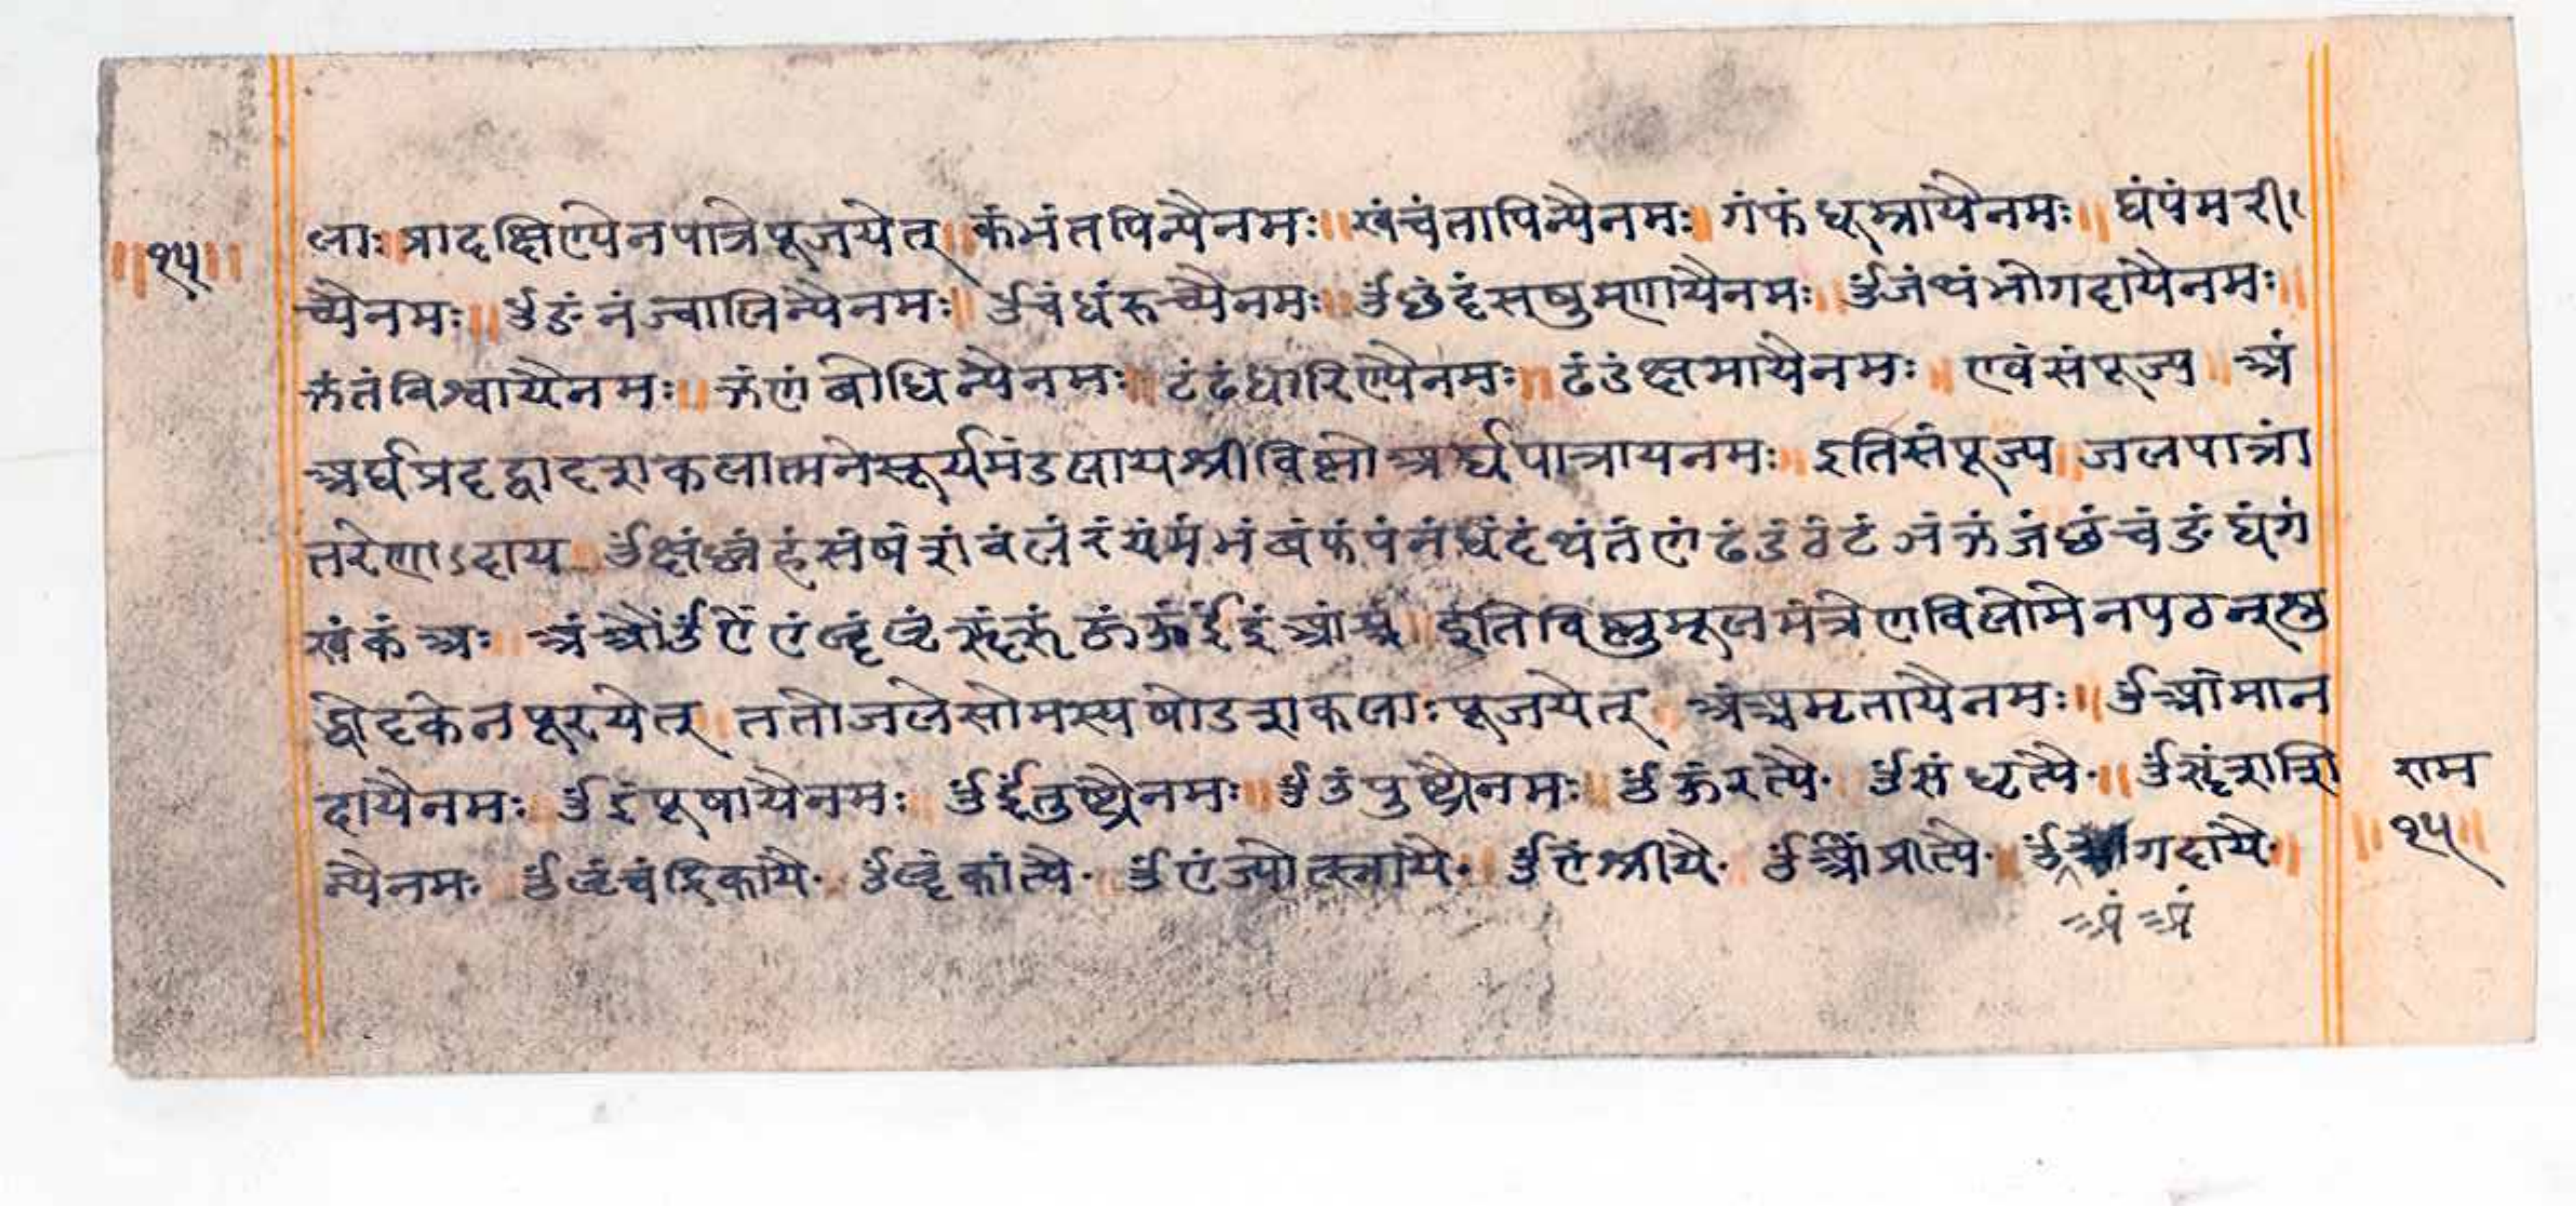 ॥१५॥
लाः प्रादक्षिण्येनपात्रेपूजयेत् ॥ कंभंतपिन्यैनमः ॥ खंचंतापिन्यैनमः ॥ गंफंधूम्रायैनमः ॥ घंपंमरी
च्यैनमः ॥ ॐङंनंज्वालिन्यैनमः ॥ ॐचंधंरुच्यैनमः ॥ ॐछंदंसषुम्णायैनमः ॥ ॐजंथंभोगदायैनमः ॥
झंतंविश्वायैनमः ॥ ञंणंबोधिन्यैनमः ॥ टंढंधारिण्यैनमः ॥ ढंडंक्षमायैनमः ॥ एवंसंपूज्य ॥ अं
अर्घप्रदद्वादशकलात्मनेसूर्यमंडलायश्रीविष्णोअर्घपात्रायनमः ॥ इतिसंपूज्य ॥ जलपात्रां
तरेणाऽदाय ॥ ॐक्षंळंहंसंषंशंवंलंरंयंमंभंबंफंपंनंधंदंथंतंणंढंडंठंटंञंझंजंछंचंङंघंगं
खंकंअः ॥ अंऔंॐऐंएंॡंऌंॠंऋंऊंउंईंइंआंअं ॥ इतिविष्णुमूलमंत्रेणविलोमेनपठन्शु
द्धोदकेनपूरयेत् ॥ ततोजलेसोमस्यषोडशकलाःपूजयेत् ॥ अंअमृतायैनमः ॥ ॐआंमान
दायैनमः ॥ ॐइंपूषायैनमः ॥ ॐईंतुष्ट्यैनमः ॥ ॐउंपुष्ट्यैनमः ॥ ॐऊंरत्यै॰ ॐसंधृत्यै॰ ॥ ॐसृंशशि
न्यैनमः ॐऌंचंद्रिकायै॰ ॐॡंकांत्यै॰ ॐएंज्योत्स्नायै॰ ॐऐंश्रीयै॰ ॐओंप्रीत्यै॰ ॐगदायै॰ ॥
अं अं
राम
॥१५॥